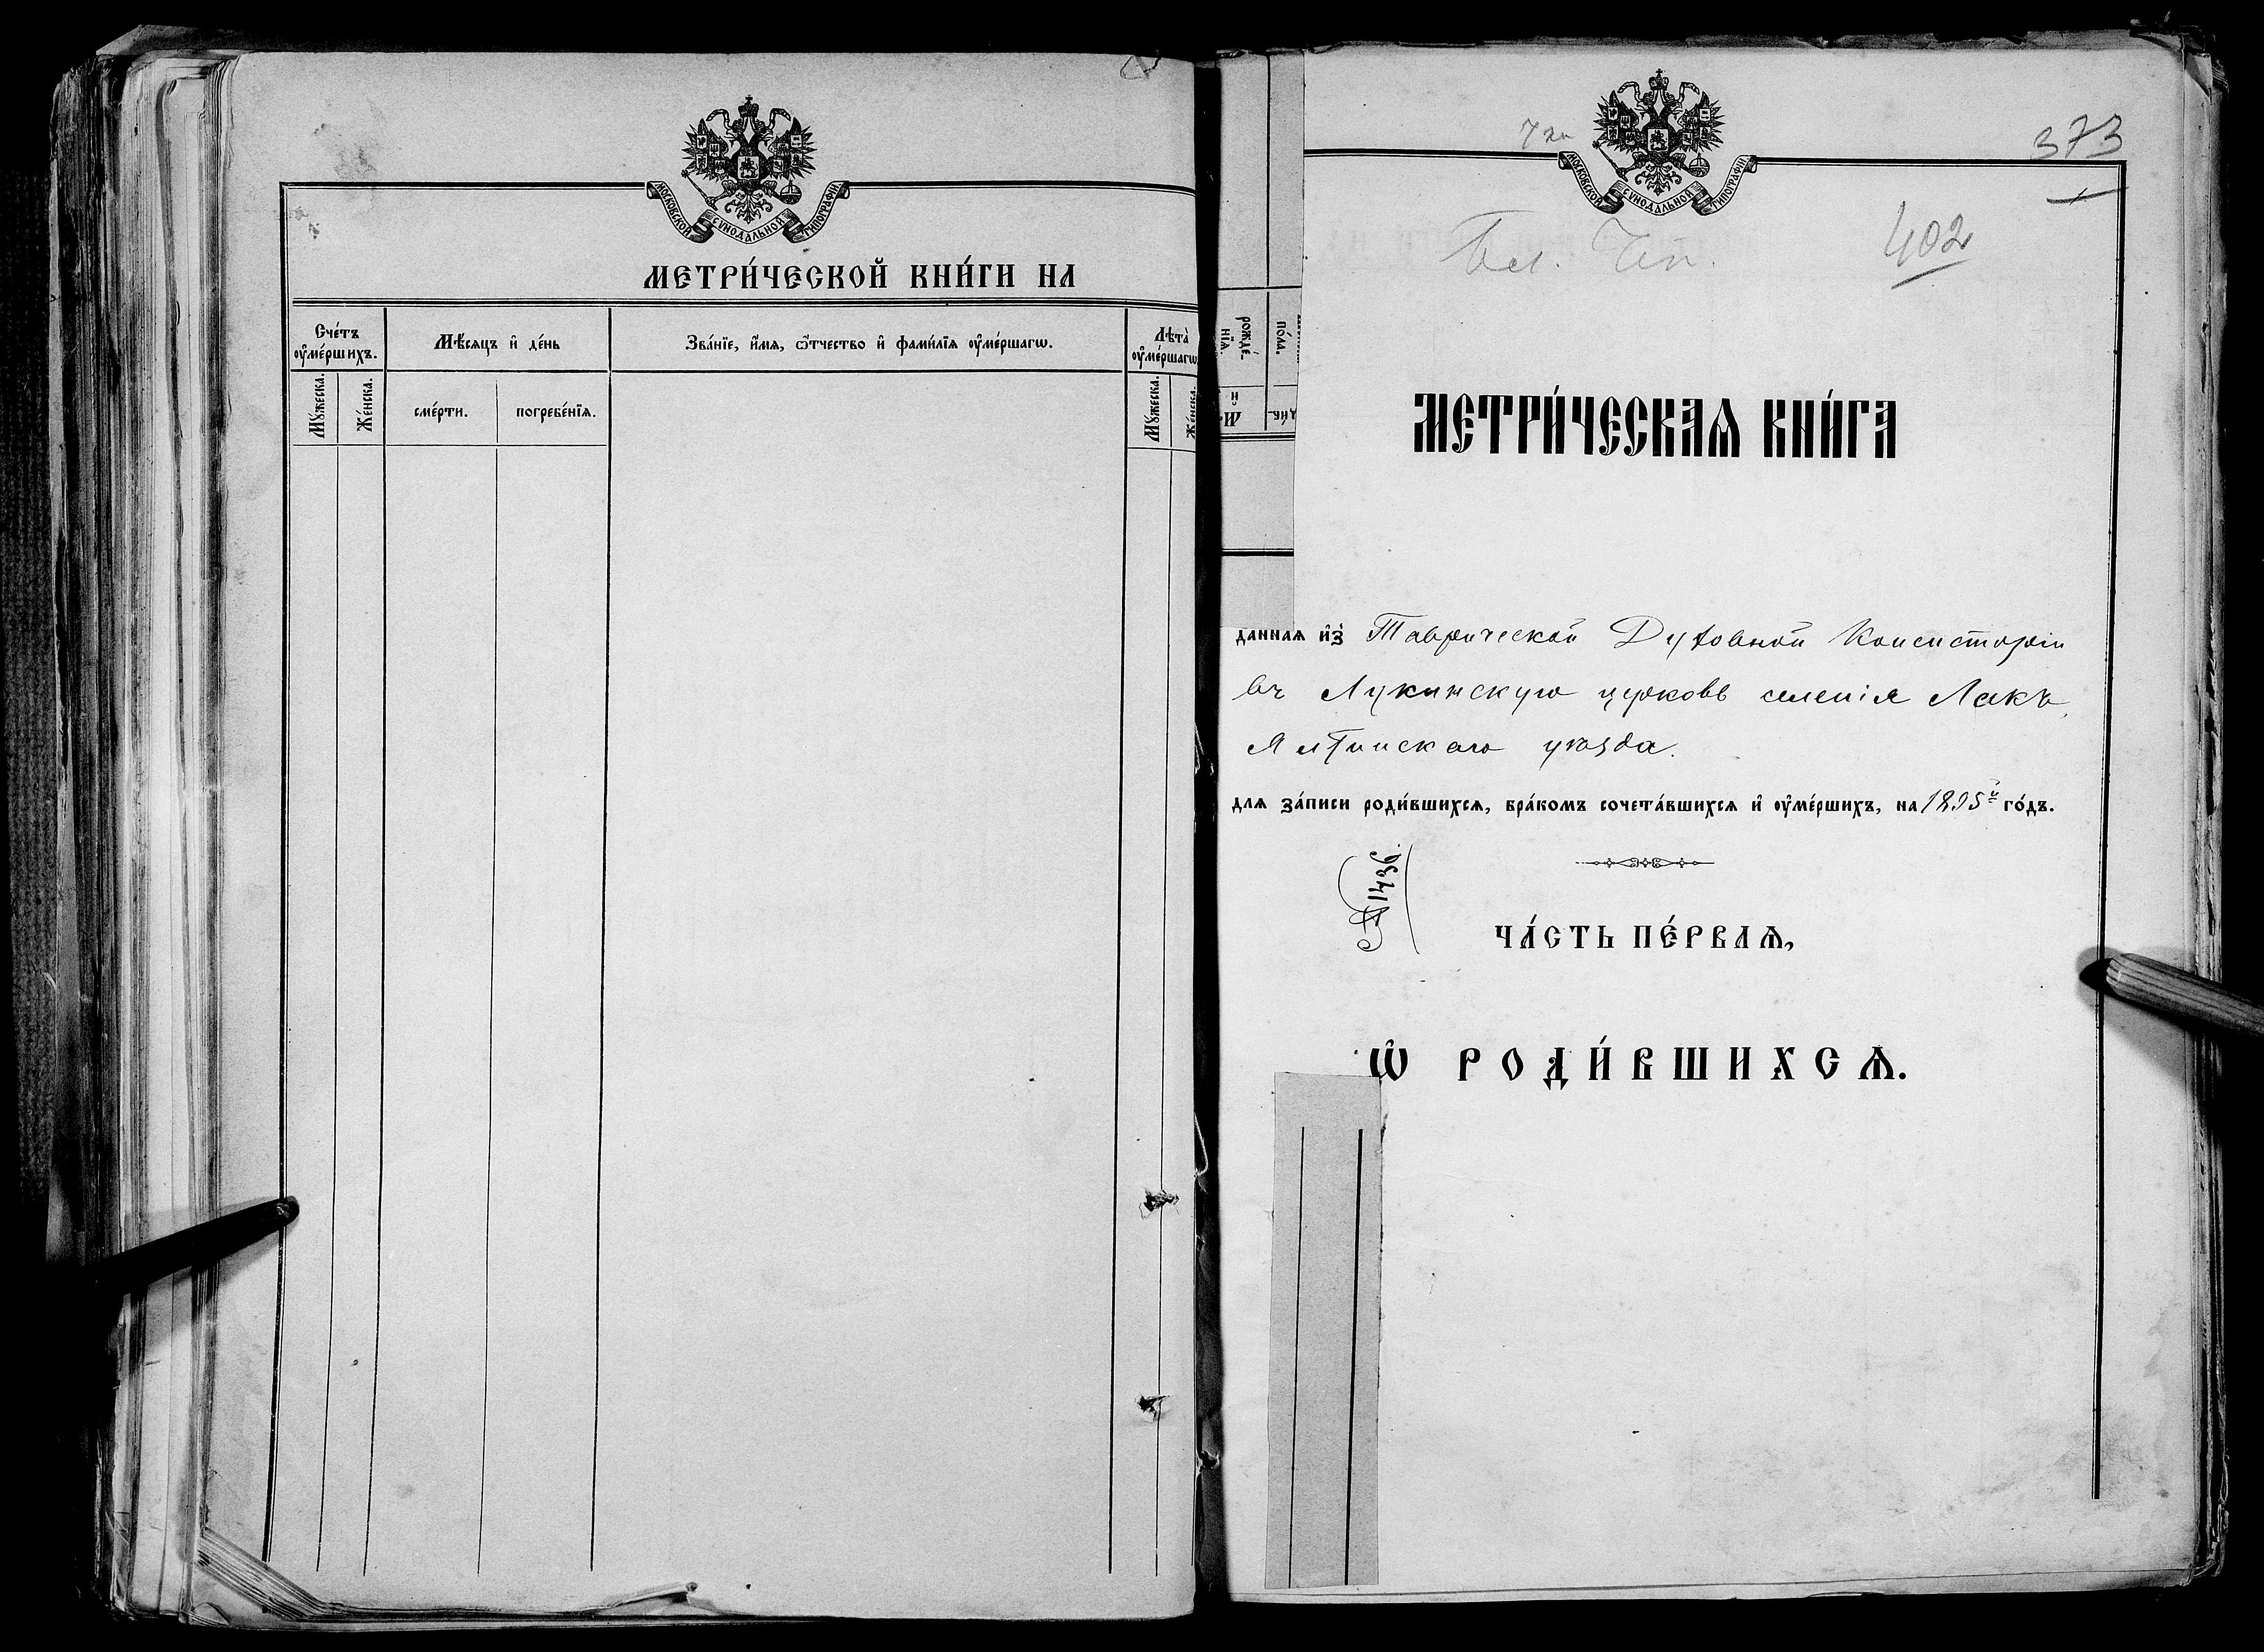 МОСКОВСКОЙ СѴНОДАЛЬНОЙ ТИПОГРАФІИ
МЕТРИ́ЧЕСКОЙ КНИ́ГИ НА
Сче́тъ ᲂу҆ме́ршихъ.
Мѣ́сяцъ и҆ де́нь
Зва́нїе, и҆́мѧ, ѻ҆́тчество и҆ фами́лїѧ ᲂу҆ме́ршагѡ.
Лѣта̀ ᲂу҆ме́ршагѡ
Мꙋ́жеска.
Же́нска.
сме́рти.
погребе́нїѧ.
Мꙋ́жеска.
Же́нска.
373
МОСКОВСКОЙ СѴНОДАЛЬНОЙ ТИПОГРАФІИ
402
рожде́-
нїѧ.
по́ла.
МЕТРИ́ЧЕСКАѦ КНИ́ГА
данная и҆з̾ Таврической Духовной Консисторіи
въ Лукинскую церковь селенія Лакъ,
Ялтинскаго уѣзда.
для за́писи роди́вшихсѧ, бра́комъ сочета́вшихсѧ и҆ ᲂу҆ме́ршихъ, на 1895й го́дъ.
№ 1436.
ЧА́СТЬ ПЕ́РВАѦ,
Ѡ҆ РОДИ́ВШИХСѦ.